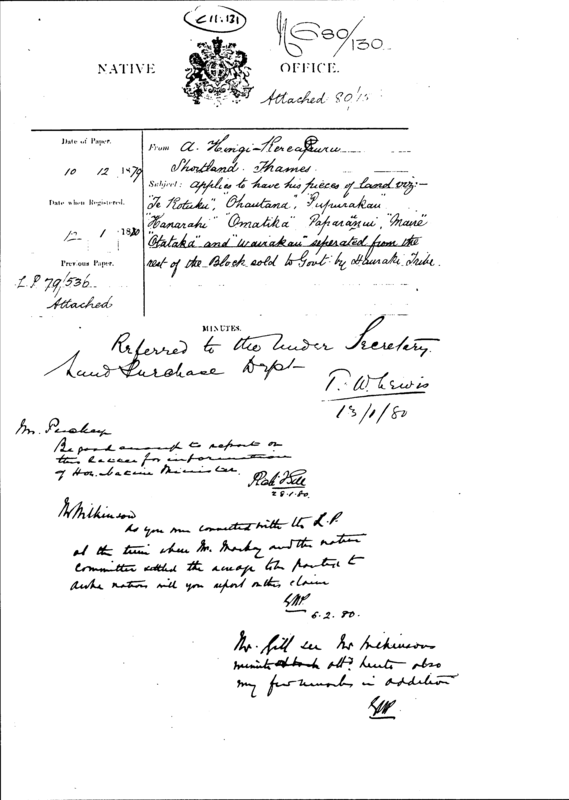 C 11: 131
NG 80/130
NATIVE OFFICE.
Attached 80/15
Date of Paper.
10 12 1879
Date when Registered.
12 1 1880
Previous Paper.
L.P 79/536
Attached
From A. Hongi
Shortland. Thames.
Subject: applies to have his pieces of land viz:-
"Te Kotuku", Ohautana", "Pupurakau
"Hanarahi" "Omatika" Paparanui, "Maire"
"Otataka" and "Wairakau" seperated from the
rest of the Block sold to Govt by Hauraki Tribe.
MINUTES.
Referred to the Under Secretary.
Land Purchase Dept
T. W. Lewis
13/1/80
Mr. Puckey
Be good enough to report on
this letter for information
of Hon. Native Minister.
28.1.80.
Mr Wilkinson
As you were connected with the L.P.
at the time when Mr. Mackay and the native
committee settled the acreage to be granted to
natives will you report on this claim
EWP
6.2.80.
Mr. Gill see Mr Wilkinsons
minute attd hereto also
my few remarks in addition
EWP